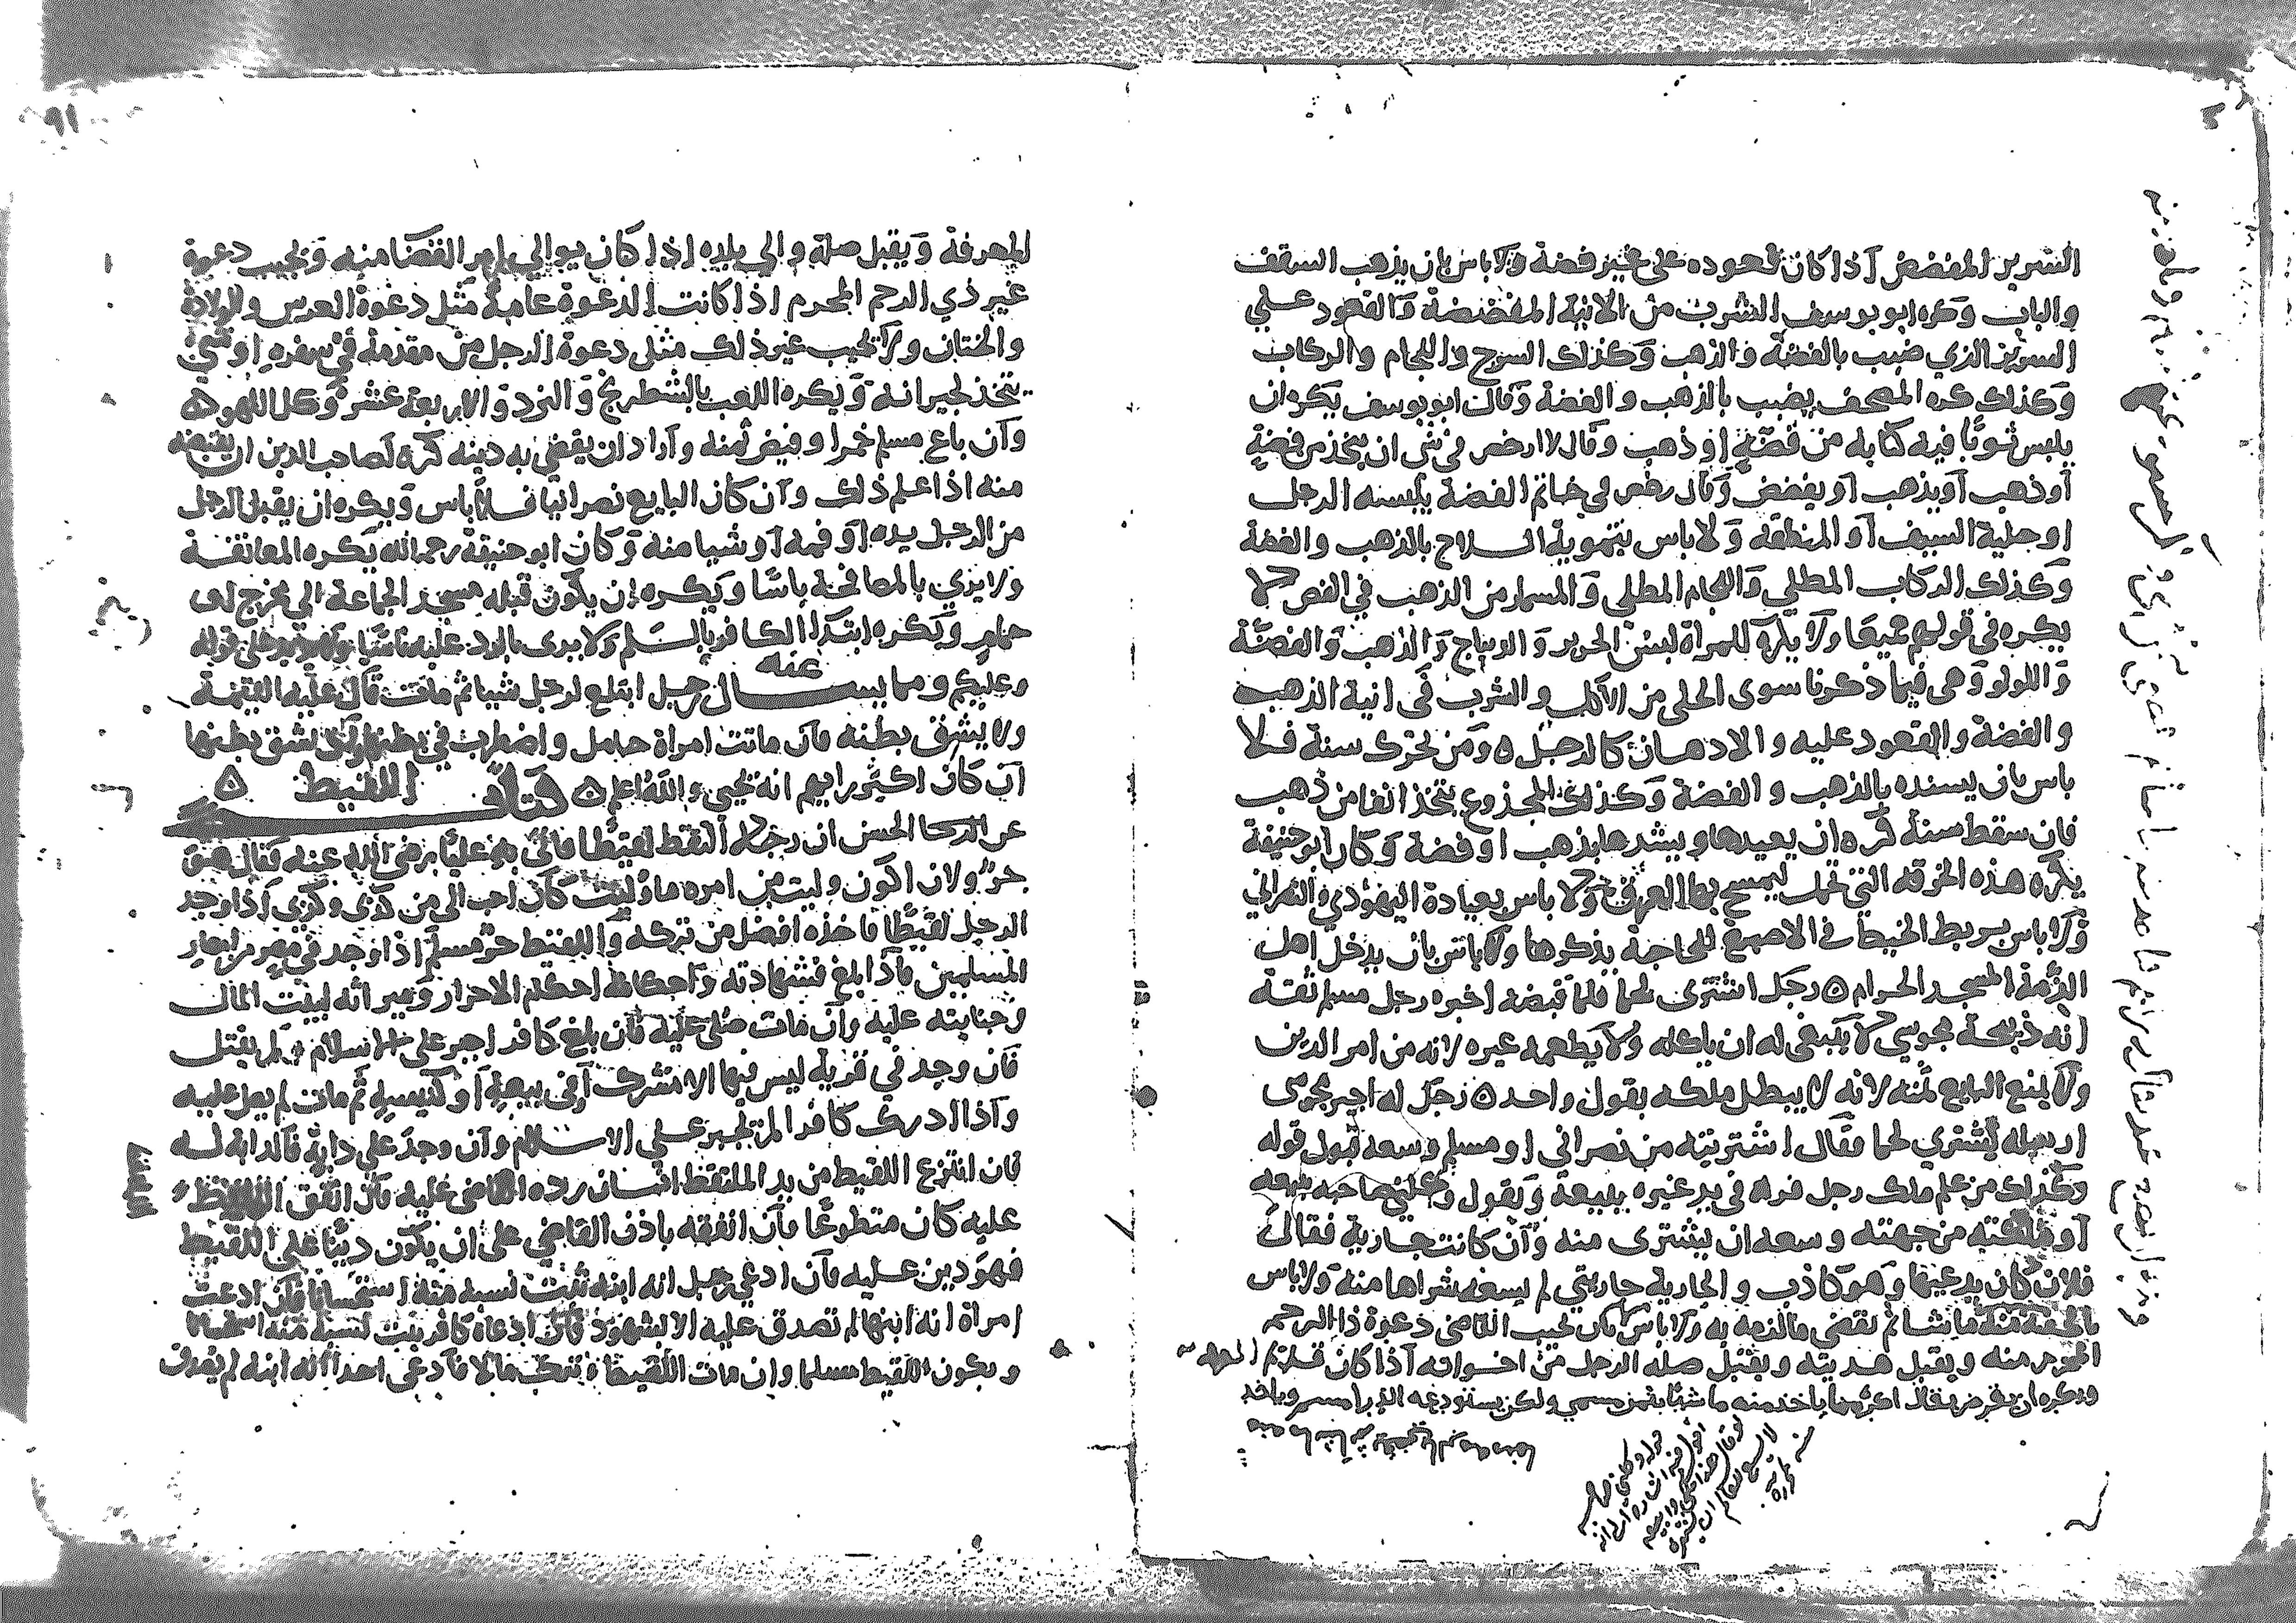 السرير المفضض اذا كان قعوده على غير فضة ولا باس بان يذهب السقف
والباب وكره ابو يوسف الشرب من الانية المفضضة والقعود علي
السرير الذي ضبب بالفضة والذهب وكذلك السرج واللجام والركاب
وكذلك كره المصحف يضبب بالذهب والفضة وقال ابو يوسف يكره ان
يلبس ثوبا فيه كتابه من فضة او ذهب وقال لا ارخص في شي ان يتخذ من فضة
او ذهب او يذهب او يفضض وقال رخص في خاتم الفضة يلبسه الرجل
او حلية السيف او المنطقة ولا باس بتمويه السلاح بالذهب والفضة
وكذلك الركاب المطلي واللجام المطلي والمسمار من الذهب في الفص لا
يكره في قولهم جميعا ولا يكره للمراة لبس الحرير والديباج والذهب والفضة
واللولو وهي فيما ذكرنا سوى الحلي من الاكل والشرب في انية الذهب
والفضة والقعود عليه والادهان كالرجل ٥ ومن تحرك سنة فلا
باس بان يسنده بالذهب والفضة وكذلك المجذوع يتخذ انفا من ذهب
فان سقط سنة كره ان يعيدها ويشدها بذهب او فضة وكان ابو حنيفة
يكره هذه الخرقه التي تحمل ليمسح بها العرق ولا باس بعيادة اليهودي والنصراني
ولا باس بربط الخيط في الاصبع للحاجة يذكرها ولا باس بان يدخل اهل
الذمة المسجد الحرام ٥ رجل اشترى لحما فلما قبضه اخبره رجل مسلم ثقة
انه ذبيحة مجوسي لا ينبغي له ان ياكله ولا يطعمه غيره لانه من امر الدين
ولا يمنع البايع ثمنه لانه لا يبطل ملكه بقول واحد ٥ رجل له اجير مجوسي
ارسله يشتري لحما فقال اشتريته من نصراني او مسلم وسعه قبول قوله
وكذلك من علم ملك رجل فراه في يد غيره يبيعه ويقول وكلني صاحبه ببيعه
او ملكته من جهته وسعه ان يشترى منه وان كانت جارية فقال
فلان كان يدعيها وهو كاذب والجارية جاريتي لم يسعه شراها منه ولا باس
القاضي دعوة ذا الرحم
المحرم منه ويقبل هديته ويقبل صلة الرجل من اخوانه اذا كان قديم المعرفة
ويكره ان يقرض بقالا دراهما ياخذ منه ما شا بثمن مسمي ولكن يستودعه الدراهم وياخذ
المعرفة ويقبل صلة والي بلده اذا كان يوالي بامر القضا منه ويجيب دعوة
غير ذي الرحم المحرم اذا كانت الدعوة عامة مثل دعوة العرس والولادة
والختان ولا يجيب غير ذلك مثل دعوة الرجل من مقدمة في سفره او شي
يتخذ لجيرانه ويكره اللعب بالشطرنج والنرد والاربعة عشر وكل اللهو ٥
وان باع مسلم خمرا وقبض ثمنه واراد ان يقضي به دينه كره لصاحب الدين ان يقبضه
منه اذا علم ذلك وان كان البايع نصرانيا فلا باس ويكره ان يقبل الرجل
من الرجل يده او فمه او شيا منه وكان ابو حنيفة رحمه الله يكره المعانقة
ولا يرى بالمصافحة باسا ويكره ان يكون قبلة مسجد الجماعة الي مخرج او
حمام ويكره ابتدا الكافر بالسلم ولا يرى بالرد عليه باسا
وعليكم ومما يسال عنه رجل ابتلع لرجل شيا ثم مات قال عليه القيمة
ولا يشق بطنه فان ماتت امراة حامل واضطرب في بطنها ولد شق بطنها
ان كان اكثر رايهم انه يحيى والله اعلم ٥ كتاب اللقيط ٥
عن الحسن ان رجلا التقط لقيطا فاتى به عليا رضي الله عنه فقال هو
حر ولان اكون وليت من امره ما وليت كان احب الي من كذى وكذى اذا وجد
الرجل لقيطا فاخذه افضل من تركه واللقيط حر مسلم اذا وجد في مصر من امصار
المسلمين فاذا بلغ فشهادته واحكامه احكام الاحرار وميراثه لبيت المال
وجنايته عليه وان مات صلى عليه فان بلغ كافرا اجبر على الاسلام ولم يقتل
فان وجد في قرية ليس فيها الا مشرك او في بيعة او كنيسة ثم مات لم يصل عليه
واذا ادرك كافرا لم يجبر علي الاسلام وان وجد على دابة فالدابة له
فان انتزع اللقيط من يد الملتقط انسان رده القاضي عليه فان انفق الملتقط
عليه كان متطوعا فان انفقه باذن القاضي على ان يكون دينا علي اللقيط
فهو دين عليه فان ادعي رجل انه ابنه ثبت نسبه منه استحسانا فان ادعت
امراة انه ابنها لم تصدق عليه الا بشهود فان ادعاه كافر يثبت نسبه منه استحسانا
ويكون اللقيط مسلما وان مات اللقيط وترك مالا فادعى احد انه ابنه لم يصدق